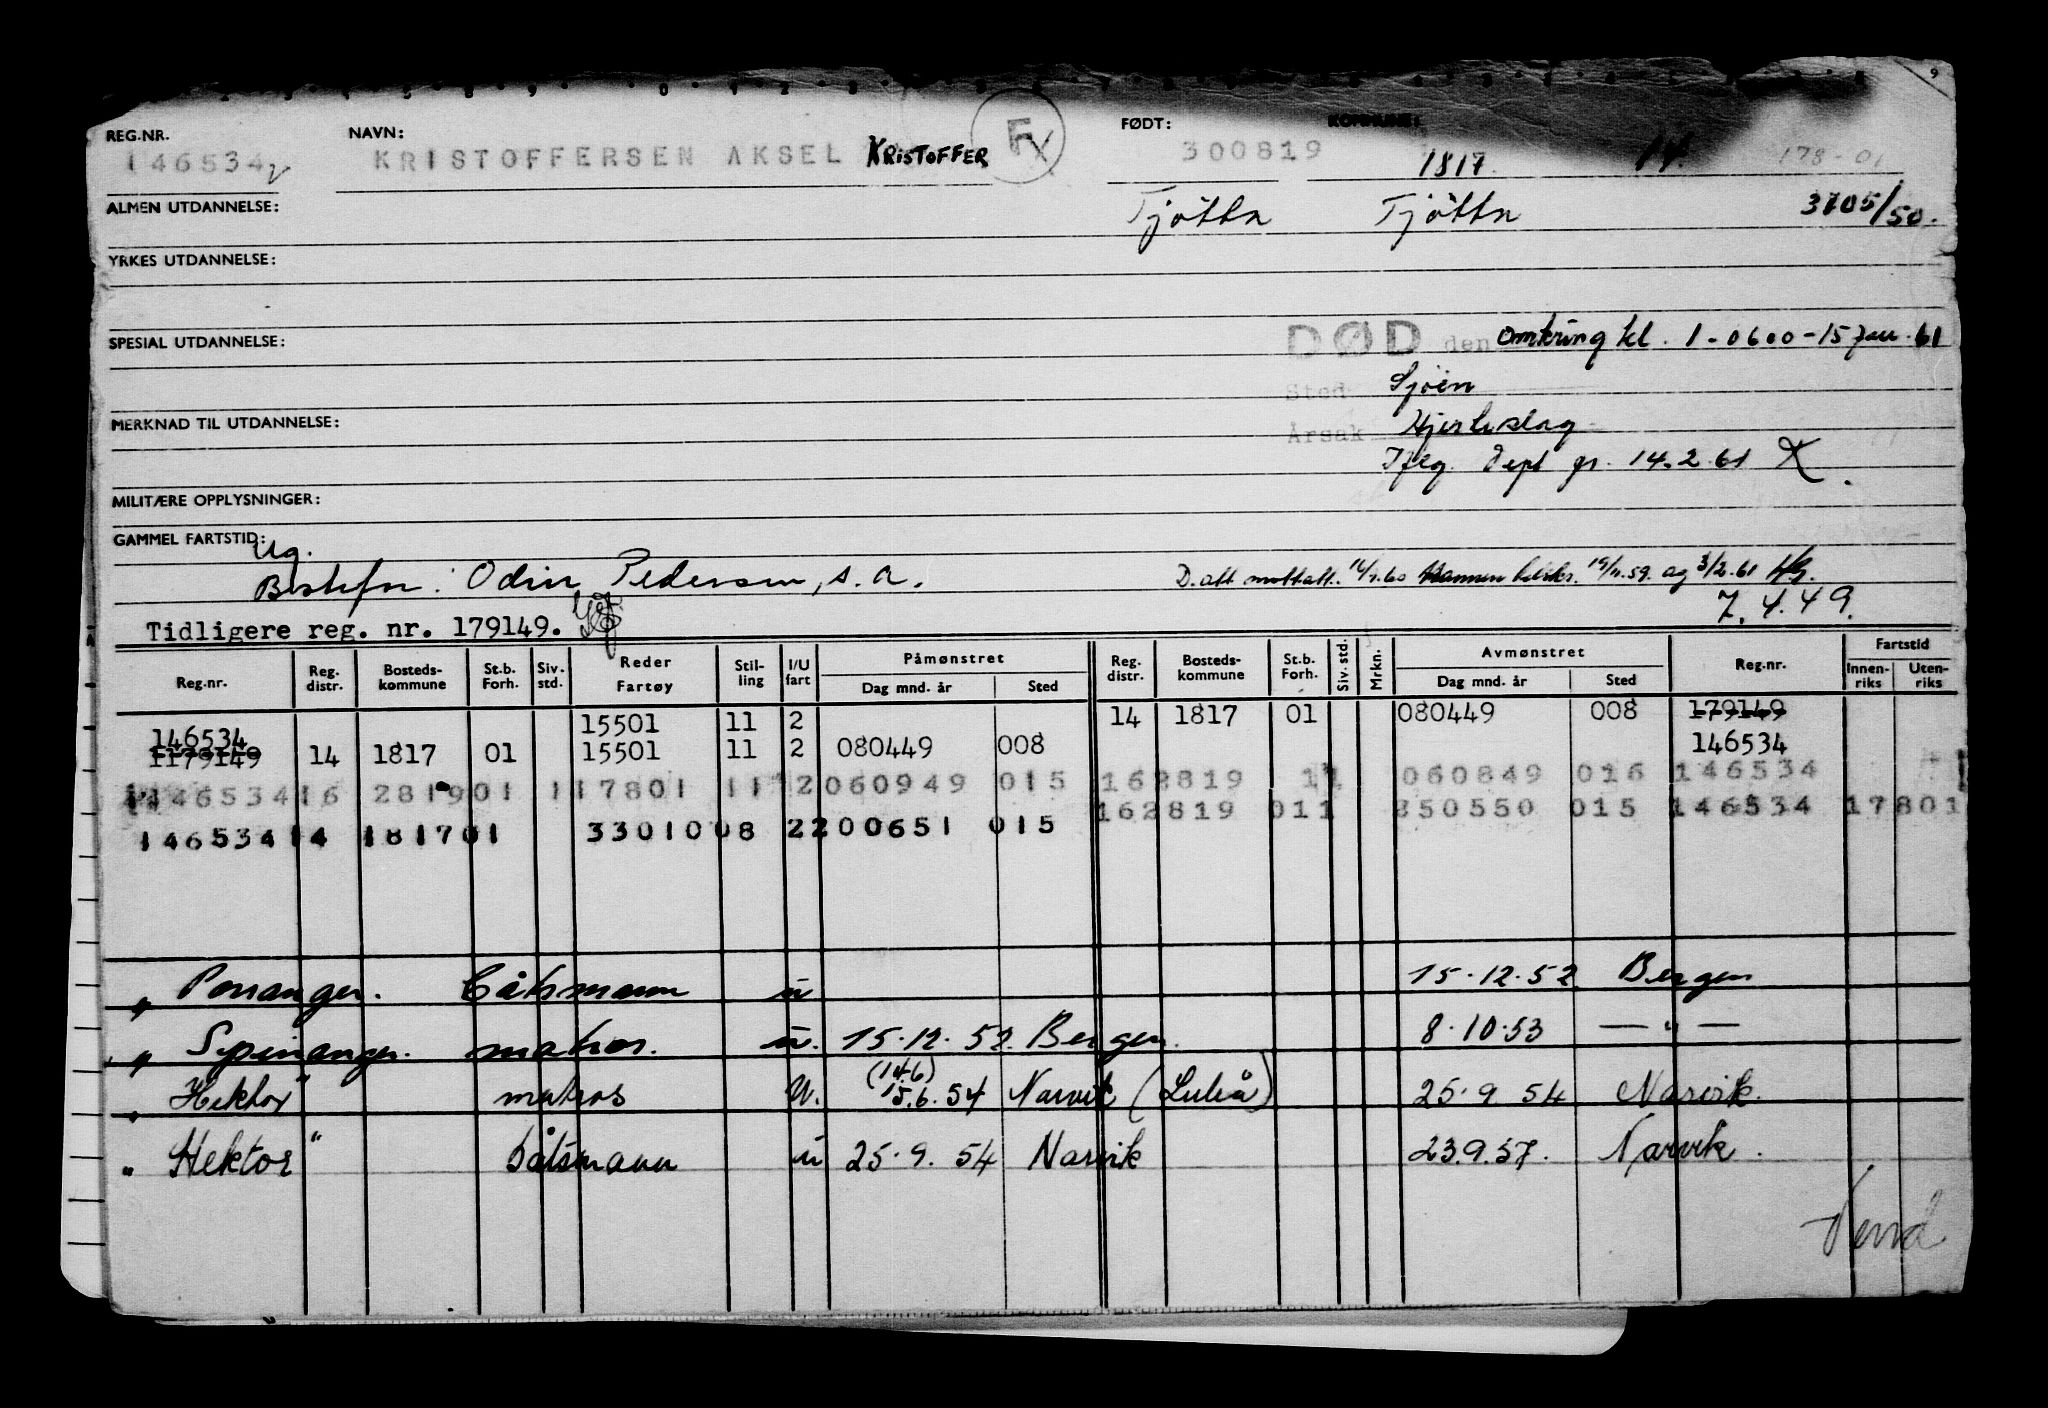 REG.NR. NAVN: FØDT: KOMMUNE:
146534 KRISTOFFERSEN AKSEL KRISTOFFER F 300819 1817 14. 178-01
ALMEN UTDANNELSE: Tjøtta Tjøtta 3705/50.
YRKES UTDANNELSE:
SPESIAL UTDANNELSE: DØD den omkring kl. 1-0600-15 Jan. 61
Sted Sjøen
MERKNAD TIL UTDANNELSE: Årsak Hjerteslag
Dept 14.2.61
MILITÆRE OPPLYSNINGER:
GAMMEL FARTSTID:
Ug.
Bestefar: Odin Pedersen, s.a. D.att mottatt. og 3/2.61
7.4.49.
Tidligere reg. nr. 179149.
Reg.nr. Reg. distr. Bosteds-kommune St.b. Forh. Siv. std. Reder Fartøy Stil-ling I/U fart Påmønstret Dag mnd. år Sted Reg. distr. Bosteds-kommune St.b. Forh. Siv. std. Mrkn. Avmønstret Dag mnd. år Sted Reg.nr. Fartstid Innen-riks Uten-riks
15501 11 2 14 1817 01 080449 008 179149
146534
1179149 14 1817 01 15501 11 2 080449 008 146534
146534 16 2819 01 1 17801 11 2 060949 015 16 2819 11 060849 016 146534
16 2819 01 1 350550 015 146534 17801
146534 14 1817 01 33010 08 2 200651 015
" Poranger. båtsmann u 15.12.52 Bergen
" Spinanger. matros. u. 15.12.52 Bergen. 8.10.53 — " —
(14.6)
" Hektor" matros u. 15.6.54 Narvik (Luleå) 25.9 54 Narvik.
" Hektor" båtsmann u 25.9.54 Narvik 23.9.57. Narvik.
Vend